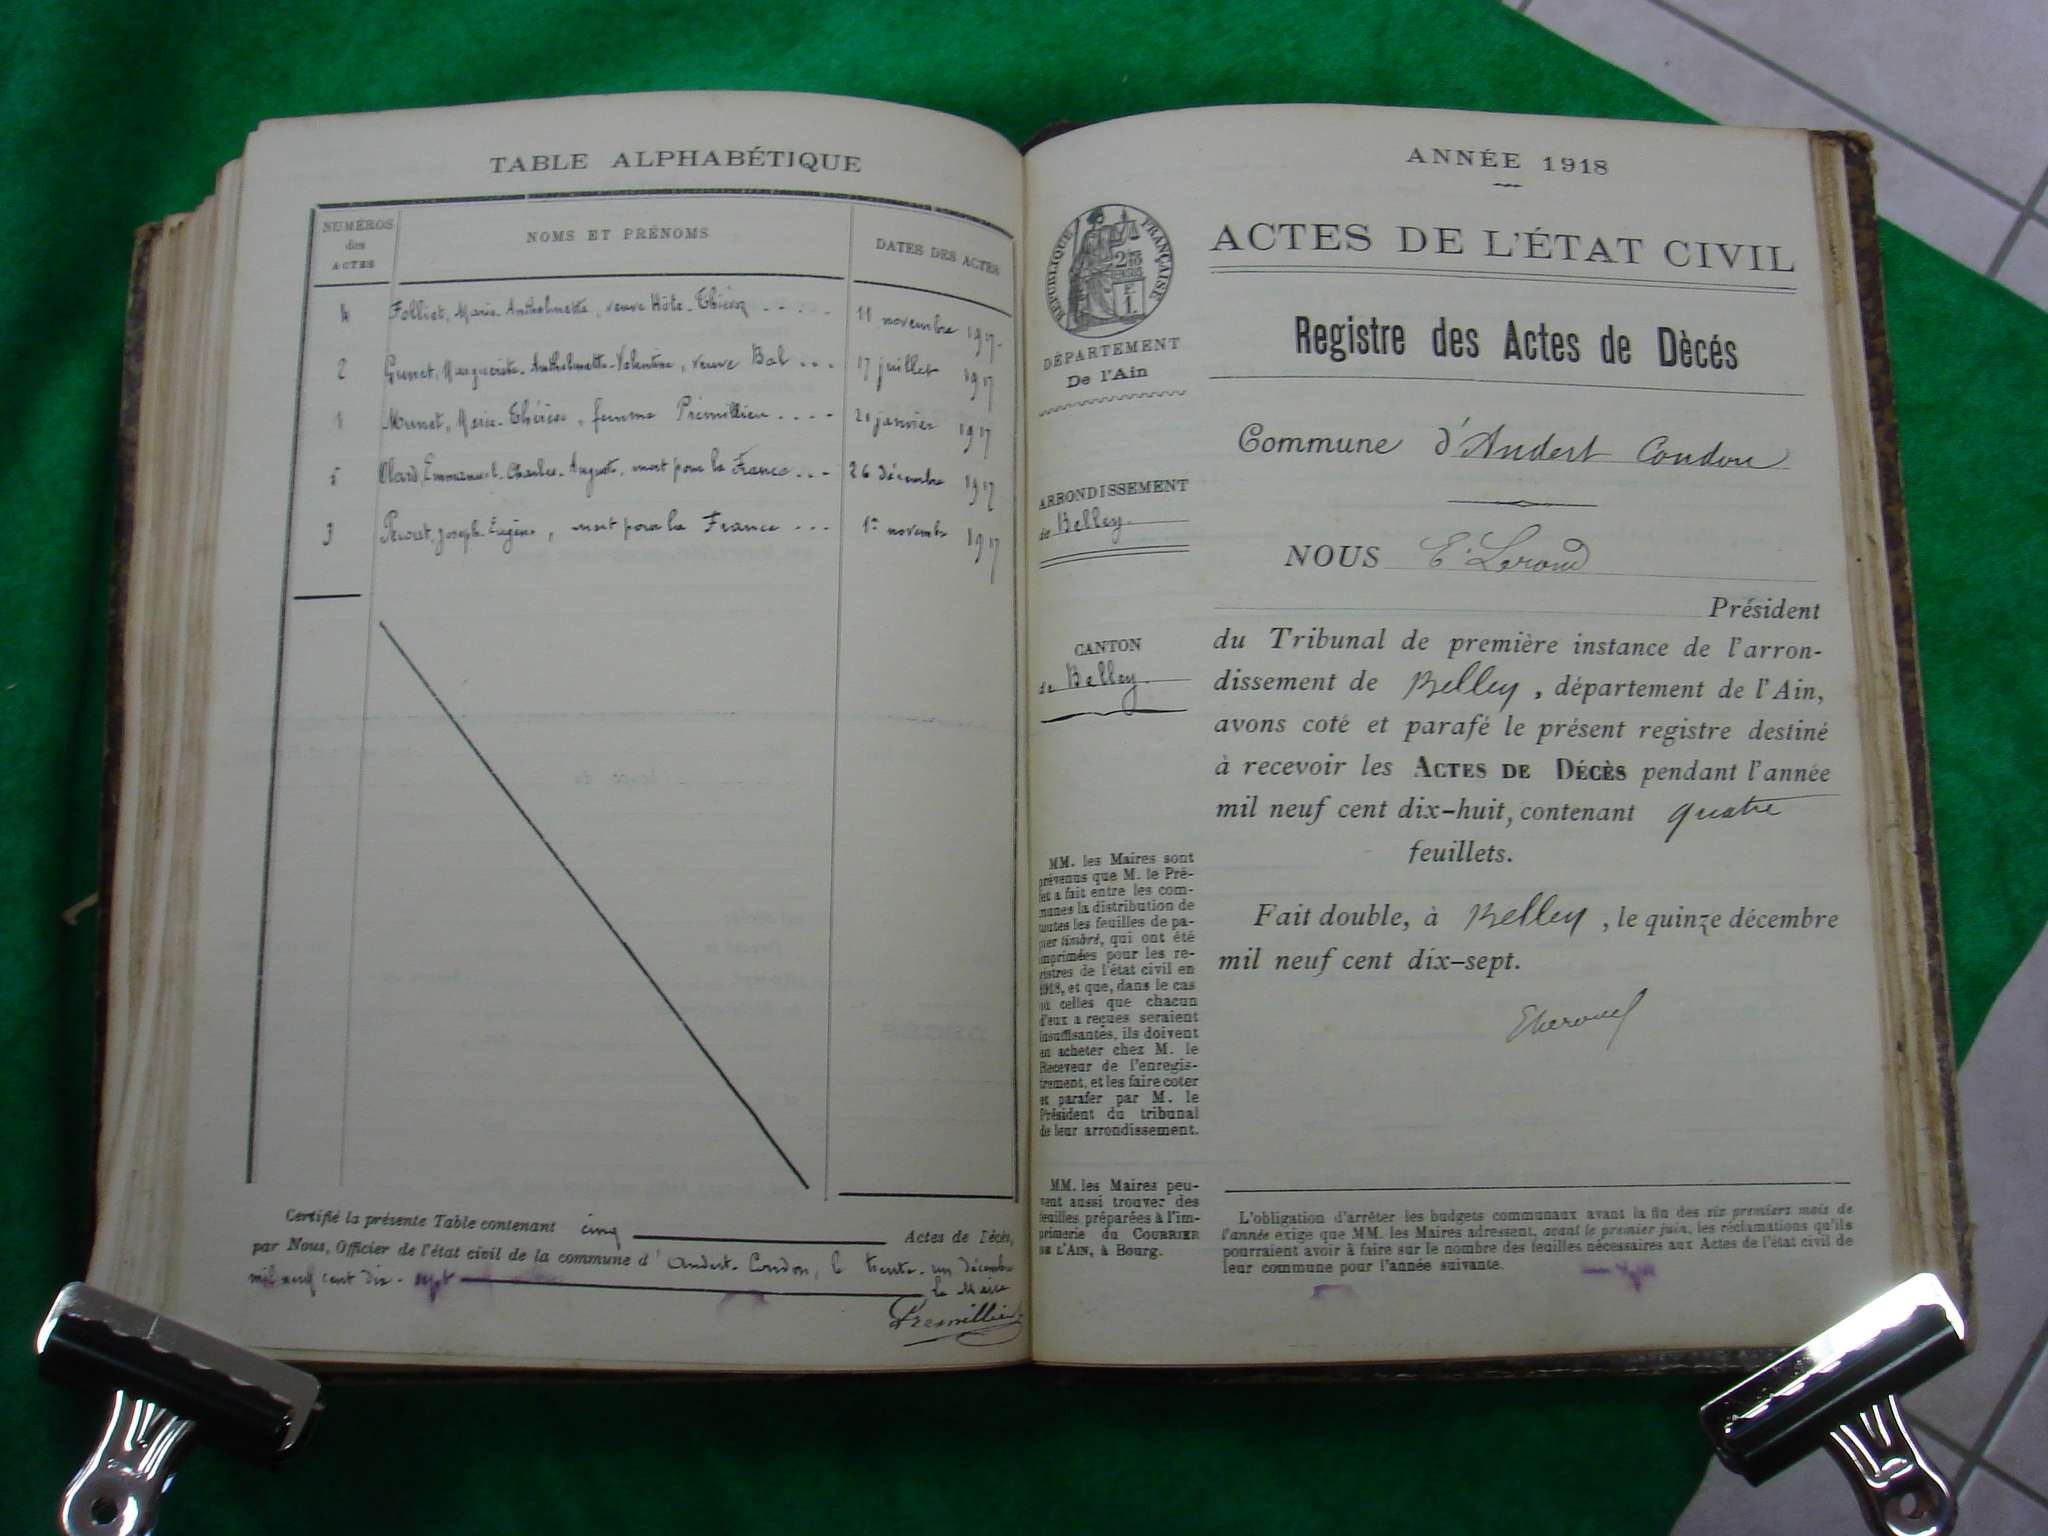 TABLE ALPHABÉTIQUE
NUMÉROS des ACTES
NOMS ET PRÉNOMS
DATES DES ACTES
4 Folliet, Marie-Anthelmette, veuve Hôte- . . . . 11 novembre 1917.
2 Marguerite-Anthelmette-Valentine, veuve Bal . . . 17 juillet 1917
1 Marie-Thérèse, femme Prémillieu . . . . 21 janvier 1917
5 Emmanuel-Charles-Auguste, mort pour la France . . . 26 décembre 1917
3 Joseph-Eugène, mort pour la France . . . 1er novembre 1917
Certifié la présente Table contenant cinq Actes de Décès,
par Nous, Officier de l'état civil de la commune d'Andert-Condon, le trente-un décembre
mil neuf cent dix-sept
Le Maire
ANNÉE 1918
RÉPUBLIQUE FRANÇAISE
ACTES DE L'ÉTAT CIVIL
DÉPARTEMENT
De l'Ain
Registre des Actes de Dècés
Commune d'Andert Condon
ARRONDISSEMENT
de Belley.
NOUS
CANTON
de Belley.
Président
du Tribunal de première instance de l'arron-
dissement de Belley, département de l'Ain,
avons coté et parafé le présent registre destiné
à recevoir les ACTES DE DÉCÈS pendant l'année
mil neuf cent dix-huit, contenant quatre
feuillets.
Fait double, à Belley, le quinze décembre
mil neuf cent dix-sept.
MM. les Maires sont
prévenus que M. le Pré-
fet a fait entre les com-
munes la distribution de
toutes les feuilles de pa-
pier timbré, qui ont été
imprimées pour les re-
gistres de l'état civil en
1918, et que, dans le cas
où celles que chacun
d'eux a reçues seraient
insuffisantes, ils doivent
en acheter chez M. le
Receveur de l'enregis-
trement, et les faire coter
et parafer par M. le
Président du tribunal
de leur arrondissement.
MM. les Maires peu-
vent aussi trouver des
feuilles, préparées à l'im-
primerie du COURRIER
DE L'AIN, à Bourg.
L'obligation d'arrêter les budgets communaux avant la fin des six premiers mois de
l'année exige que MM. les Maires adressent, avant le premier juin, les réclamations qu'ils
pourraient avoir à faire sur le nombre des feuilles nécessaires aux Actes de l'état civil de
leur commune pour l'année suivante.